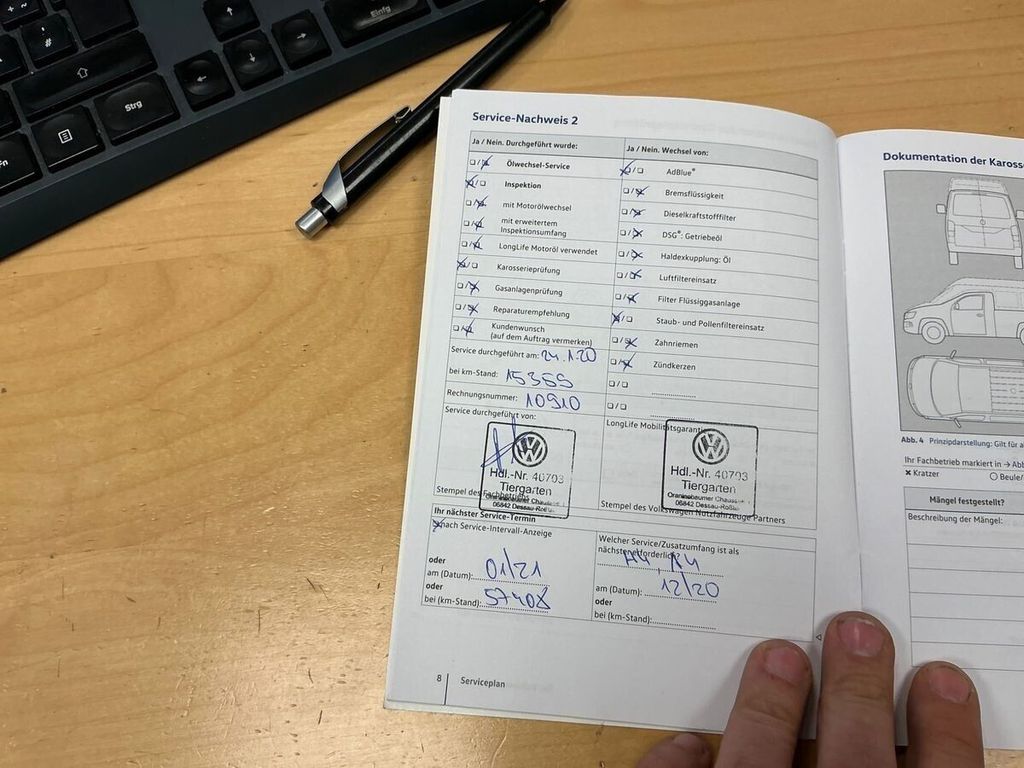 #
Einfg
Strg
Fn
Service-Nachweis 2
Ja / Nein. Durchgeführt wurde:
Ölwechsel-Service
Inspektion
mit Motorölwechsel
mit erweitertem
Inspektionsumfang
LongLife Motoröl verwendet
Karosserieprüfung
Gasanlagenprüfung
Reparaturempfehlung
Kundenwunsch
(auf dem Auftrag vermerken)
Service durchgeführt am: 24.1.20
bei km-Stand: 15369
Rechnungsnummer: 10910
Service durchgeführt von:
Hdl.-Nr. 40703
Tiergarten
Oranienbaumer Chaussee
06842 Dessau-Roßlau
Stempel des Fachbetriebs
Ihr nächster Service-Termin
nach Service-Intervall-Anzeige
oder
am (Datum): 01/21
oder
bei (km-Stand): 57408
Ja / Nein. Wechsel von:
AdBlue®
Bremsflüssigkeit
Dieselkraftstofffilter
DSG®: Getriebeöl
Haldexkupplung: Öl
Luftfiltereinsatz
Filter Flüssiggasanlage
Staub- und Pollenfiltereinsatz
Zahnriemen
Zündkerzen
LongLife Mobilitätsgarantie
Hdl.-Nr. 40703
Tiergarten
Oranienbaumer Chaussee
06842 Dessau-Roßlau
Stempel des Volkswagen Nutzfahrzeuge Partners
Welcher Service/Zusatzumfang ist als
nächstes erforderlich
am (Datum): 12/20
oder
bei (km-Stand):
8 Serviceplan
Dokumentation der Karosse
Abb. 4 Prinzipdarstellung: Gilt für a
Ihr Fachbetrieb markiert in → Abb
× Kratzer ○ Beule/
Mängel festgestellt?
Beschreibung der Mängel: